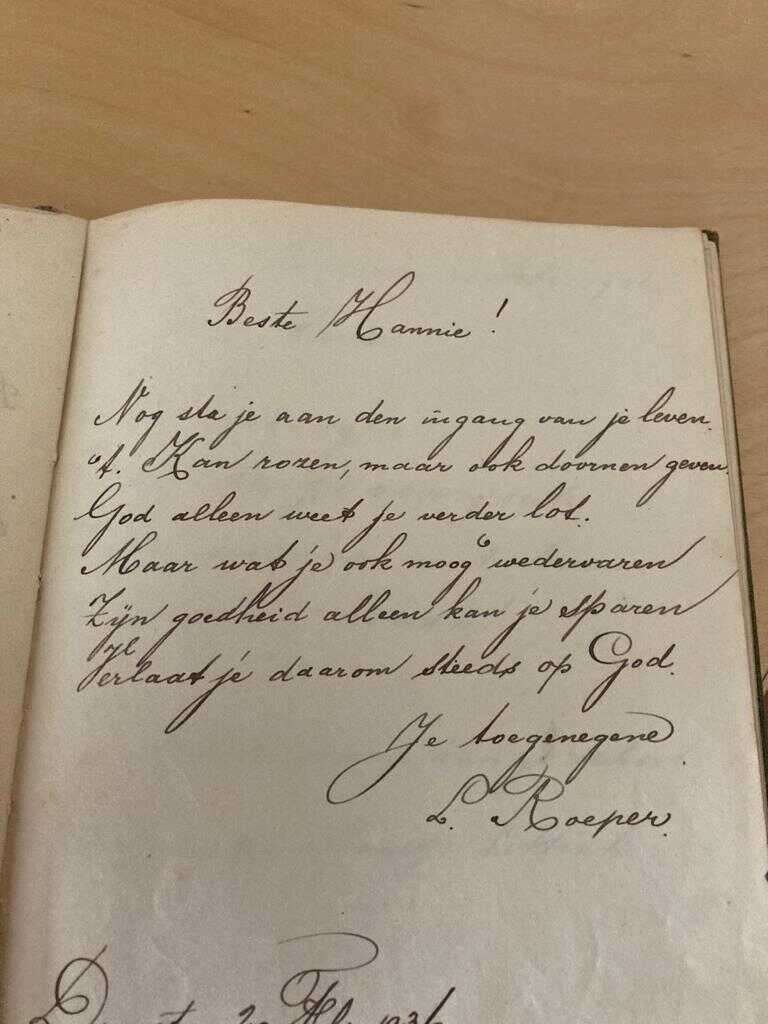 Beste Hannie!
Nog sta je aan den ingang van je leven.
't. Kan rozen, maar ook doornen geven.
God alleen weet je verder lot.
Maar wat je ook moog' wedervaren
Zijn goedheid alleen kan je sparen
Verlaat je daarom steeds op God.
Je toegenegene
L. Roeper.